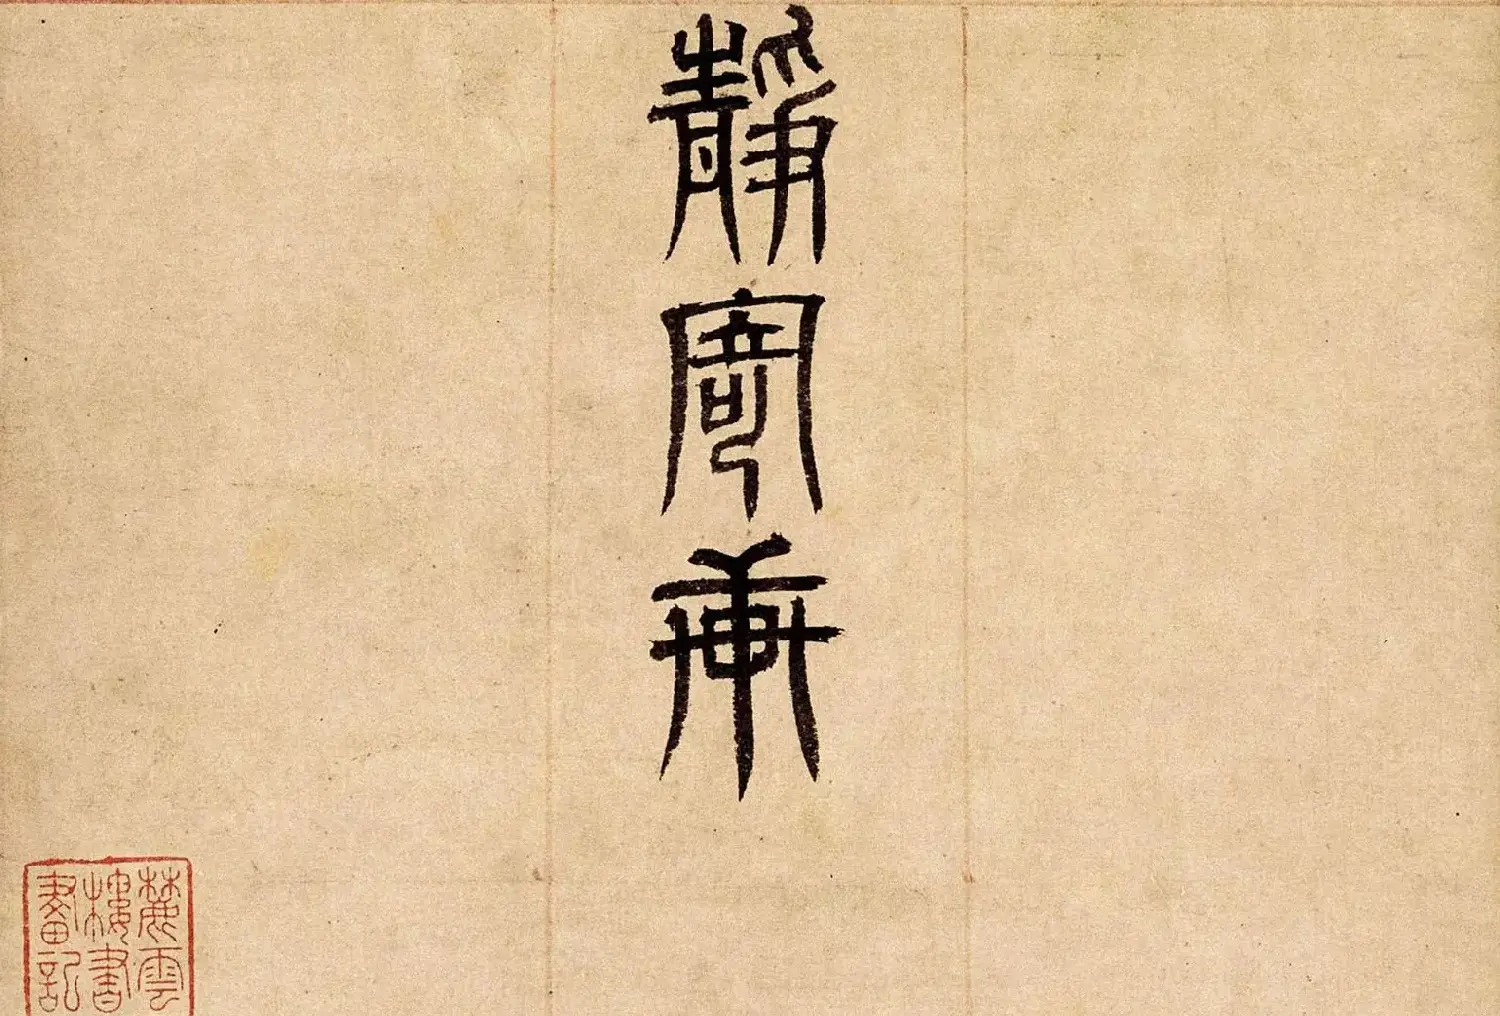 靜寄軒
麓雲樓書畫記